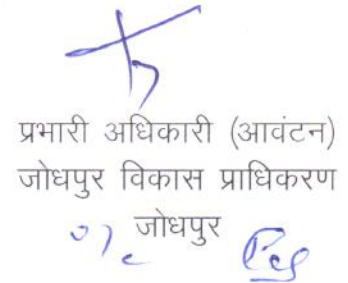 प्रभारी अधिकारी (आवंटन)
जोधपुर विकास प्राधिकरण
जोधपुर